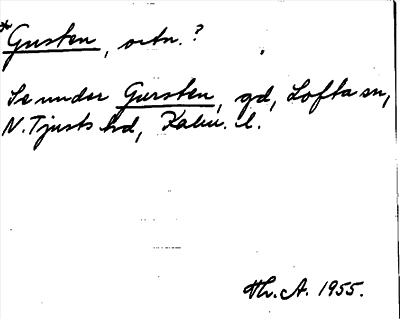 *Gusten, ortn.?
Se under Gursten, gd, Lofta sn,
N. Tjusts hd, Kalm. l.
Th. A. 1955.